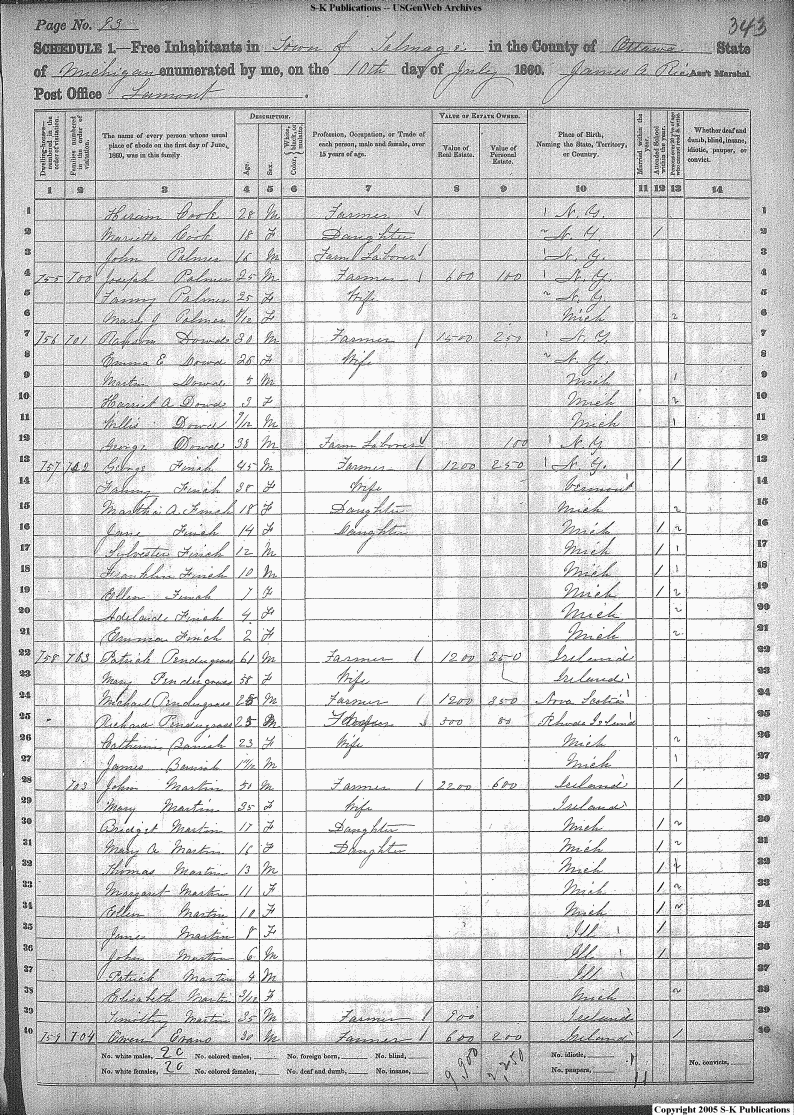 S-K Publications -- USGenWeb Archives
Page No. 83
343
SCHEDULE 1.—Free Inhabitants in Town of Talmage in the County of Ottawa State
of Michigan enumerated by me, on the 10th day of July 1860. James A Ass't Marshal
Post Office Lamont.
DESCRIPTION. VALUE OF ESTATE OWNED.
Dwelling-houses— numbered in the order of visitation. Families numbered in the order of visitation. The name of every person whose usual place of abode on the first day of June, 1860, was in this family Age. Sex. Color, White, black, or mulatto. Profession, Occupation, or Trade of each person, male and female, over 15 years of age. Value of Real Estate. Value of Personal Estate. Place of Birth, Naming the State, Territory, or Country. Married within the year. Attended School within the year. Persons over 20 y'rs of age who cannot read & write. Whether deaf and dumb, blind, insane, idiotic, pauper, or convict.
1 2 3 4 5 6 7 8 9 10 11 12 13 14
1 Hiram Cook 28 M Farmer N. Y. 1
2 Marietta Cook 18 F Daughter N. Y. 1 2
3 John Palmer 16 M Farm Laborer N. Y. 3
4 755 700 Joseph Palmer 25 M Farmer 600 100 N. Y. 4
5 Fanny Palmer 25 F Wife N. Y. 5
6 Mary J Palmer /12 F Mich 2 6
7 756 701 Ransom Dowd 30 M Farmer 1500 250 N. Y. 7
8 Emma E Dowd 26 F Wife N. Y. 8
9 Martin Dowd 5 M Mich 1 9
10 Harriet A Dowd 3 F Mich 2 10
11 Willis Dowd /12 M Mich 1 11
12 George Dowd 38 M Farm Laborer 100 N. Y 12
13 757 702 George Finch 45 M Farmer 1200 250 N. Y. / 13
14 Fanny Finch 38 F Wife Vermont 14
15 Martha A. Finch 18 F Daughter Mich 2 15
16 Jane Finch 14 F Daughter Mich 1 2 16
17 Sylvester Finch 12 M Mich 1 1 17
18 Franklin Finch 10 M Mich 1 1 18
19 Ellen Finch 7 F Mich 1 2 19
20 Adelaide Finch 4 F Mich 2 20
21 Emma Finch 2 F Mich 2 21
22 758 703 Patrick Pendergrass 61 M Farmer 1200 350 Ireland 22
23 Mary Pendergrass 58 F Wife Ireland 23
24 Michael Pendergrass 25 M Farmer 1200 350 Nova Scotia 24
25 Richard Pendergrass 25 M 500 80 Rhode Island 25
26 Catherine 23 F Wife Mich 2 26
27 James M Mich 1 27
28 703 John Martin 50 M Farmer 2200 600 Ireland / 28
29 Mary Martin 35 F Wife Ireland 29
30 Bridget Martin 17 F Daughter Mich 1 2 30
31 Mary A Martin 16 F Daughter Mich 1 2 31
32 Thomas Martin 13 M Mich 1 32
33 Margaret Martin 11 F Mich 1 2 33
34 Ellen Martin 10 F Mich 1 2 34
35 James Martin 8 F Ill 1 35
36 John Martin 6 M Ill 1 36
37 Patrick Martin 4 M Ill 37
38 Elisabeth Martin 3/12 F Mich 2 38
39 Timothy Martin 35 M Farmer 900 Ireland 39
40 759 704 Owen Evans 30 M Farmer 600 200 Ireland / 40
No. white males, 20 No. colored males, No. foreign born, No. blind, 9,900 2,250 No. idiotic, No. convicts,
No. white females, 20 No. colored females, No. deaf and dumb, No. insane, No. paupers, 11
Copyright 2005 S-K Publications